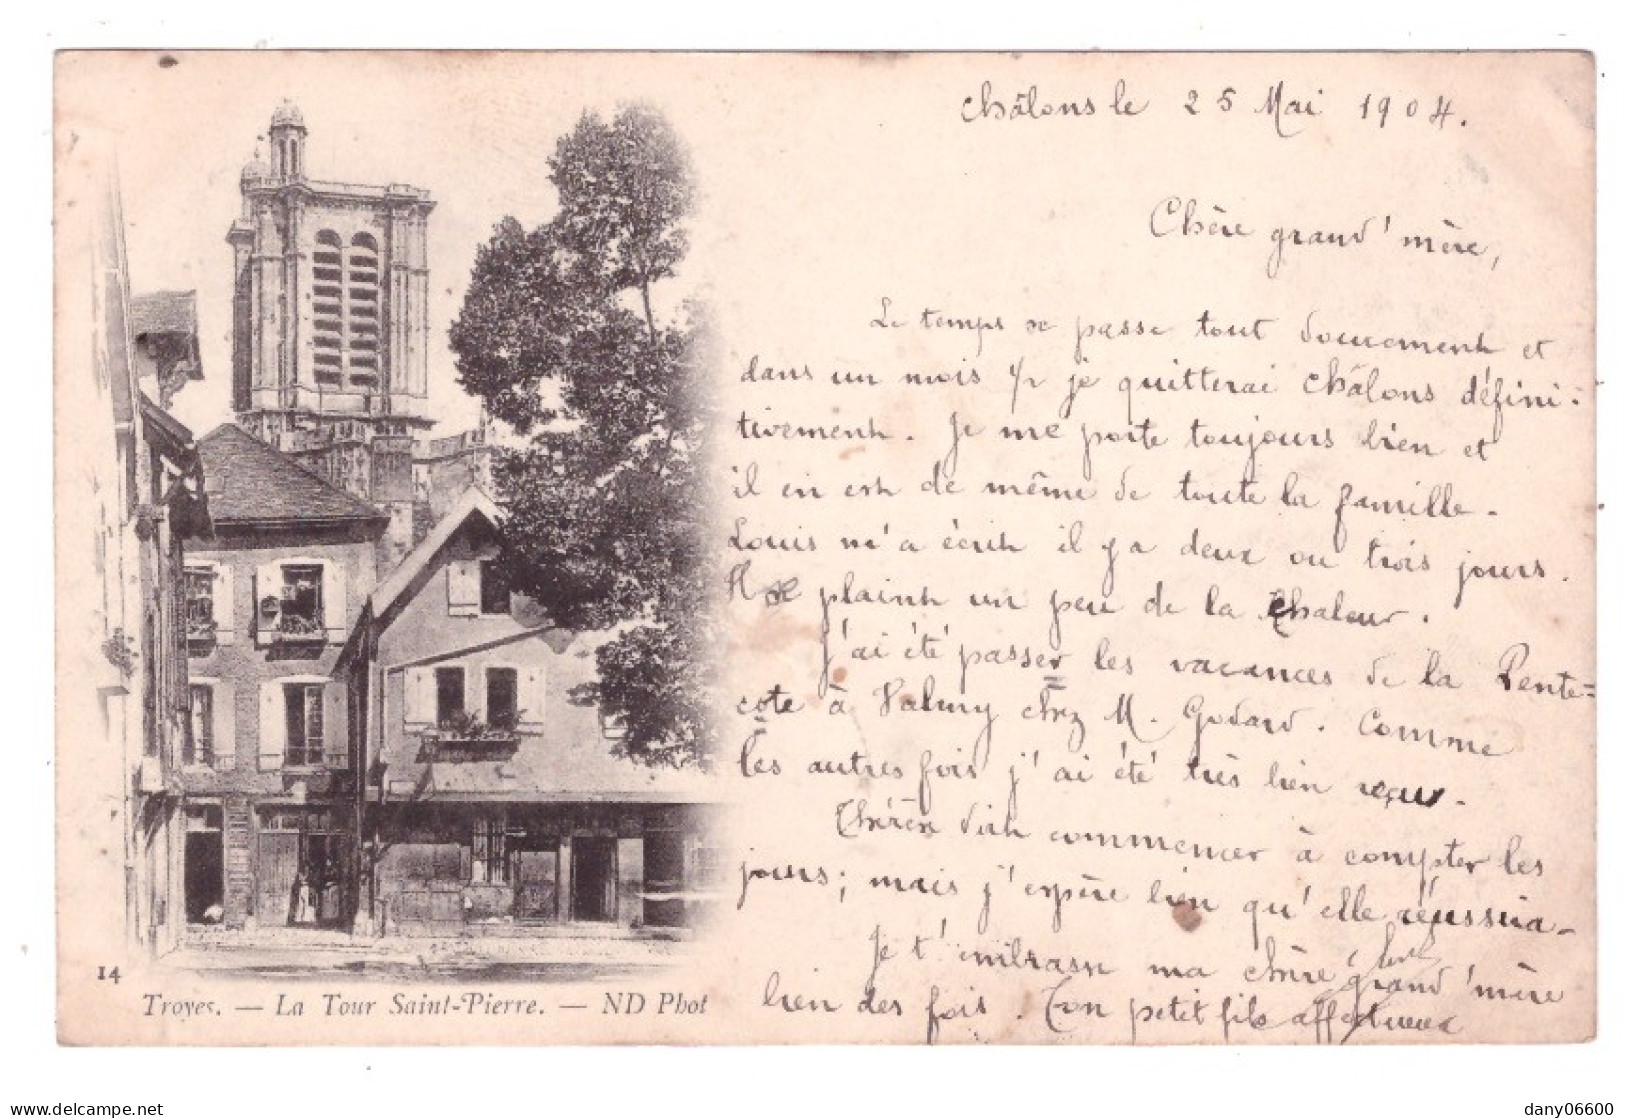 Châlons le 25 Mai 1904.
Chère grand'mère,
Le temps se passe tout doucement et
dans un mois 1/2 je quitterai Châlons défini-
tivement. Je me porte toujours bien et
il en est de même de toute la famille.
Louis m'a écrit il y a deux ou trois jours.
Il se plaint un peu de la chaleur.
J'ai été passer les vacances de la Pente=
cote à Valmy chez M. Godard. Comme
les autres fois j'ai été très bien reçu.
Thérèse doit commencer à compter les
jours; mais j'espère bien qu'elle réussira.
Je t'embrasse ma chère grand'mère
bien des fois. Ton petit fils affectueux
14
Troyes. — La Tour Saint-Pierre. — ND Phot
delcampe.net
dany06600